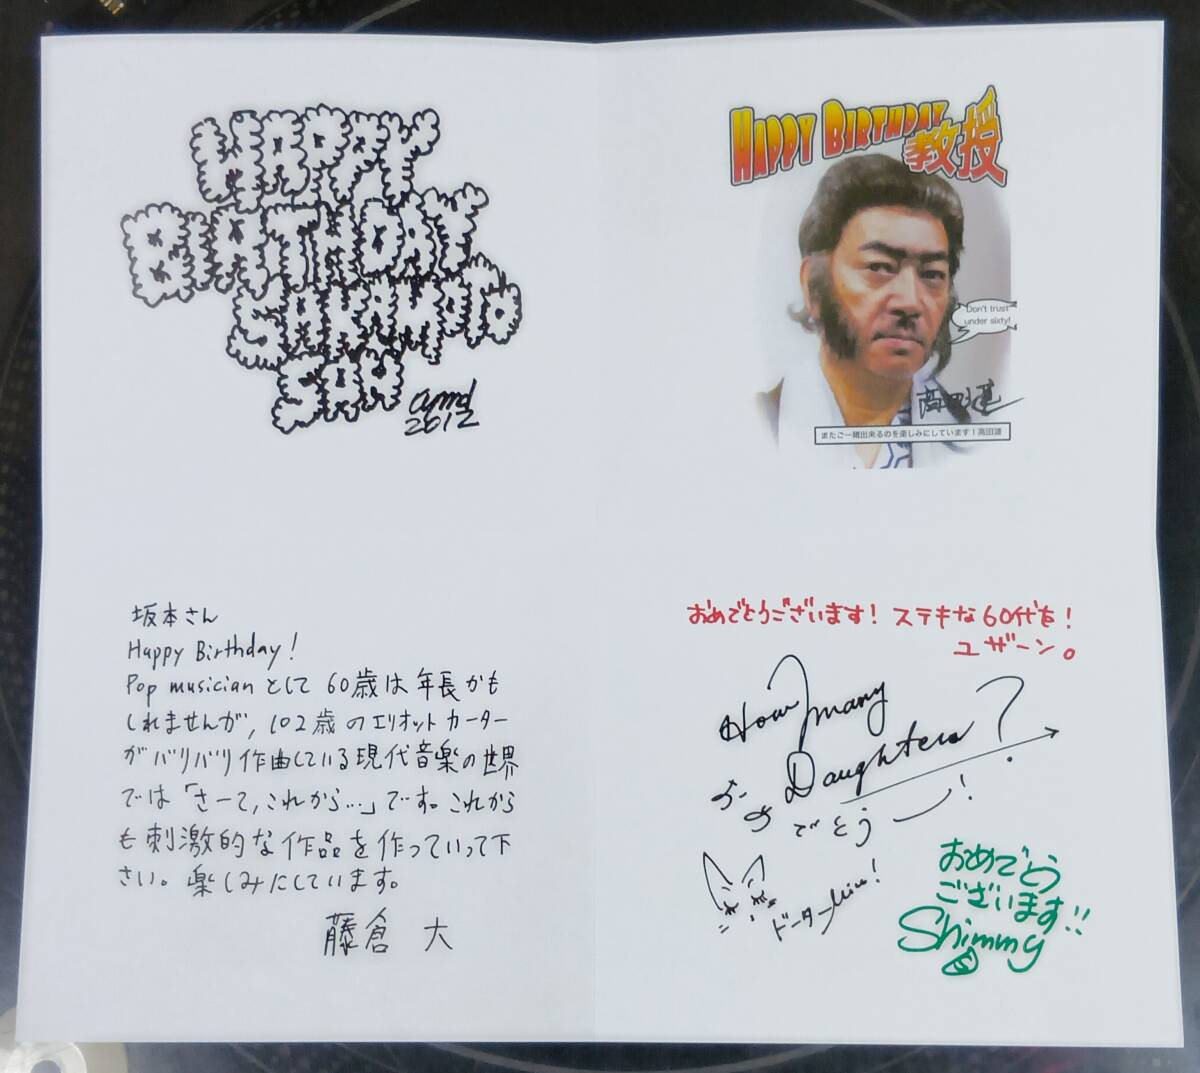 HAPPY
BIRTHDAY
SAKAMOTO
SAN
2012
HAPPY BIRTHDAY
教授
Don't trust
under sixty!
高田漣
またご一緒出来るのを楽しみにしています！高田漣
坂本さん
Happy Birthday!
Pop musicianとして60歳は年長かも
しれませんが，102歳のエリオットカーター
がバリバリ作曲している現代音楽の世界
では「さーて，これから…」です。これから
も刺激的な作品を作っていって下
さい。楽しみにしています。
藤倉 大
おめでとうございます！ステキな60代を！
ユザーン。
How many
Daughters?
でとう
ドーター
おめでとう
ございます!!
Shimmy